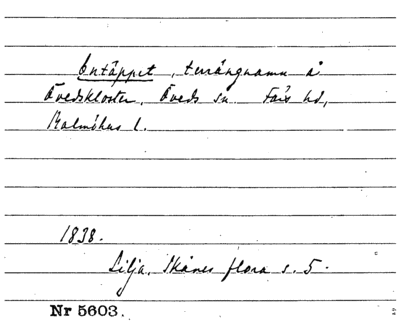 Entäppet, terrängnamn å
Övedskloster, Öveds sn Färs hd,
Malmöhus l.
1838.
Lilja, Skånes flora s. 5.
Nr 5603.